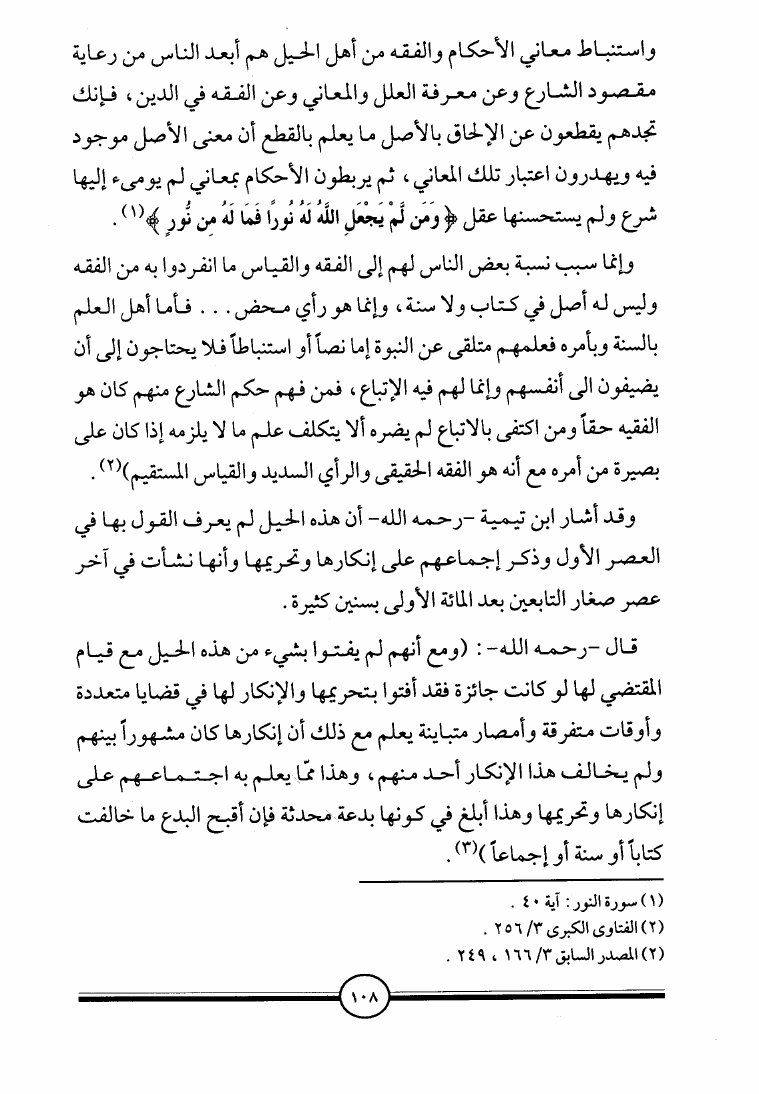 واستنباط معاني الأحكام والفقه من أهل الحيل هم أبعد الناس من رعاية
مقصود الشارع وعن معرفة العلل والمعاني وعن الفقه في الدين، فإنك
تجدهم يقطعون عن الإلحاق بالأصل ما يعلم بالقطع أن معنى الأصل موجود
فيه ويهدرون اعتبار تلك المعاني، ثم يربطون الأحكام بمعاني لم يومىء إليها
شرع ولم يستحسنها عقل ﴿ وَمَن لَّمْ يَجْعَلِ اللَّهُ لَهُ نُورًا فَمَا لَهُ مِن نُّورٍ ﴾(١).
وإنما سبب نسبة بعض الناس لهم إلى الفقه والقياس ما انفردوا به من الفقه
وليس له أصل في كتاب ولا سنة، وإنما هو رأي محض... فأما أهل العلم
بالسنة وبأمره فعلمهم متلقى عن النبوة إما نصاً أو استنباطاً فلا يحتاجون إلى أن
يضيفون الى أنفسهم وإنما لهم فيه الإتباع، فمن فهم حكم الشارع منهم كان هو
الفقيه حقاً ومن اكتفى بالاتباع لم يضره ألا يتكلف علم ما لا يلزمه إذا كان على
بصيرة من أمره مع أنه هو الفقه الحقيقى والرأي السديد والقياس المستقيم)(٢).
وقد أشار ابن تيمية -رحمه الله- أن هذه الحيل لم يعرف القول بها في
العصر الأول وذكر إجماعهم على إنكارها وتحريمها وأنها نشأت في آخر
عصر صغار التابعين بعد المائة الأولى بسنين كثيرة.
قال -رحمه الله-: (ومع أنهم لم يفتوا بشيء من هذه الحيل مع قيام
المقتضي لها لو كانت جائزة فقد أفتوا بتحريمها والإنكار لها في قضايا متعددة
وأوقات متفرقة وأمصار متباينة يعلم مع ذلك أن إنكارها كان مشهوراً بينهم
ولم يخالف هذا الإنكار أحد منهم، وهذا ممّا يعلم به اجتماعهم على
إنكارها وتحريمها وهذا أبلغ في كونها بدعة محدثة فإن أقبح البدع ما خالفت
كتاباً أو سنة أو إجماعاً )(٣).
(١) سورة النور: آية ٤٠ .
(٢) الفتاوى الكبرى ٣/ ٢٥٦ .
(٢) المصدر السابق ٣/ ١٦٦ ، ٢٤٩ .
١٠٨